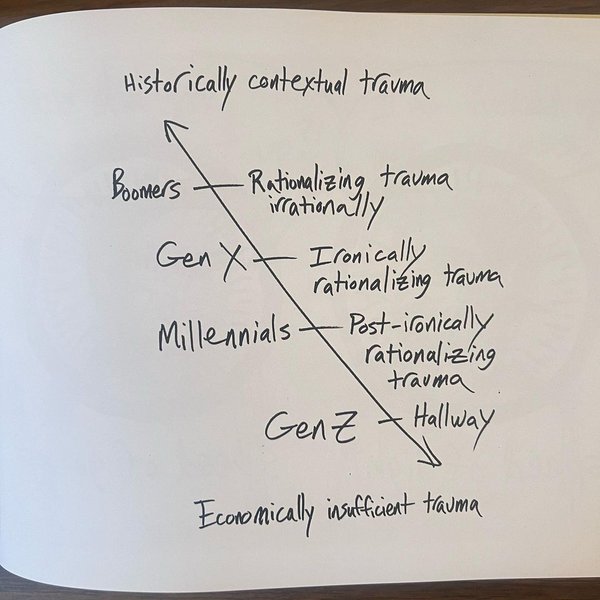 Historically contextual trauma
Boomers
Rationalizing trauma
irrationally
Gen X
Ironically
rationalizing trauma
Millennials
Post-ironically
rationalizing
trauma
Gen Z
Hallway
Economically insufficient trauma